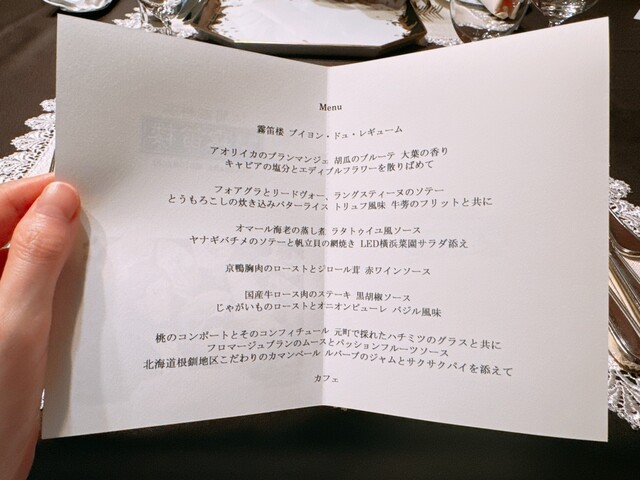 Menu
霧笛楼 ブイヨン・ドュ・レギューム
アオリイカのブランマンジェ 胡瓜のブルーテ 大葉の香り
キャビアの塩分とエディブルフラワーを散りばめて
フォアグラとリードヴォー、ラングスティーヌのソテー
とうもろこしの炊き込みバターライス トリュフ風味 牛蒡のフリットと共に
オマール海老の蒸し煮 ラタトゥイユ風ソース
ヤナギバチメのソテーと帆立貝の網焼き LED横浜菜園サラダ添え
京鴨胸肉のローストとジロール茸 赤ワインソース
国産牛ロース肉のステーキ 黒胡椒ソース
じゃがいものローストとオニオンピューレ バジル風味
桃のコンポートとそのコンフィチュール 元町で採れたハチミツのグラスと共に
フロマージュブランのムースとパッションフルーツソース
北海道根釧地区こだわりのカマンベール ルバーブのジャムとサクサクパイを添えて
カフェ